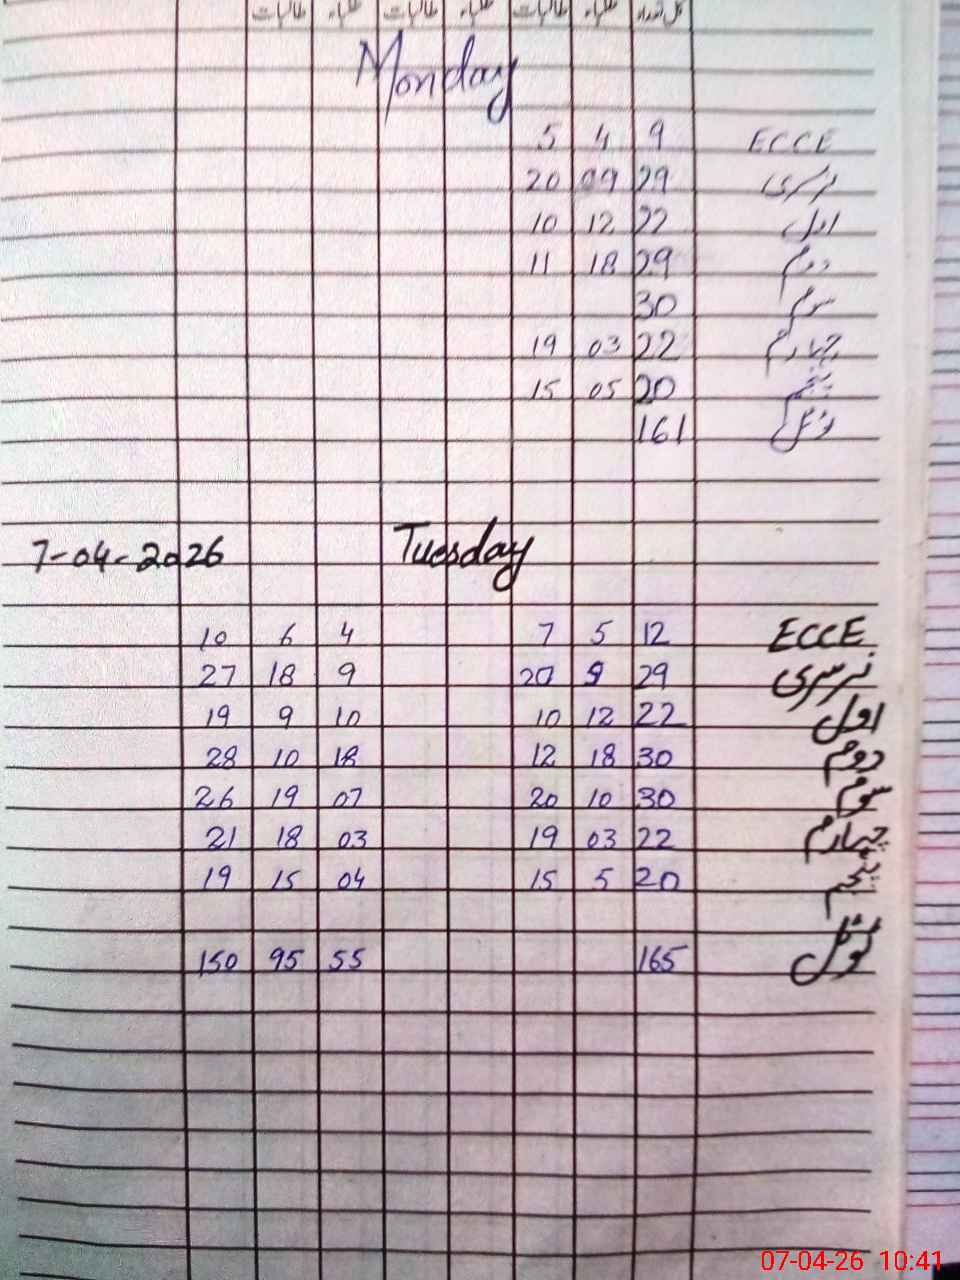 طالبات طلباء طالبات طلباء طالبات طلباء کل تعداد
Monday
5 4 9 ECCE
20 09 29 نرسری
10 12 22 اول
11 18 29 دوم
30 سوم
19 03 22 چہارم
15 05 20 پنجم
161 ٹوٹل
7-04-2026 Tuesday
10 6 4 7 5 12 ECCE
27 18 9 20 9 29 نرسری
19 9 10 10 12 22 اول
28 10 18 12 18 30 دوم
26 19 07 20 10 30 سوم
21 18 03 19 03 22 چہارم
19 15 04 15 5 20 پنجم
150 95 55 165 ٹوٹل
07-04-26 10:41